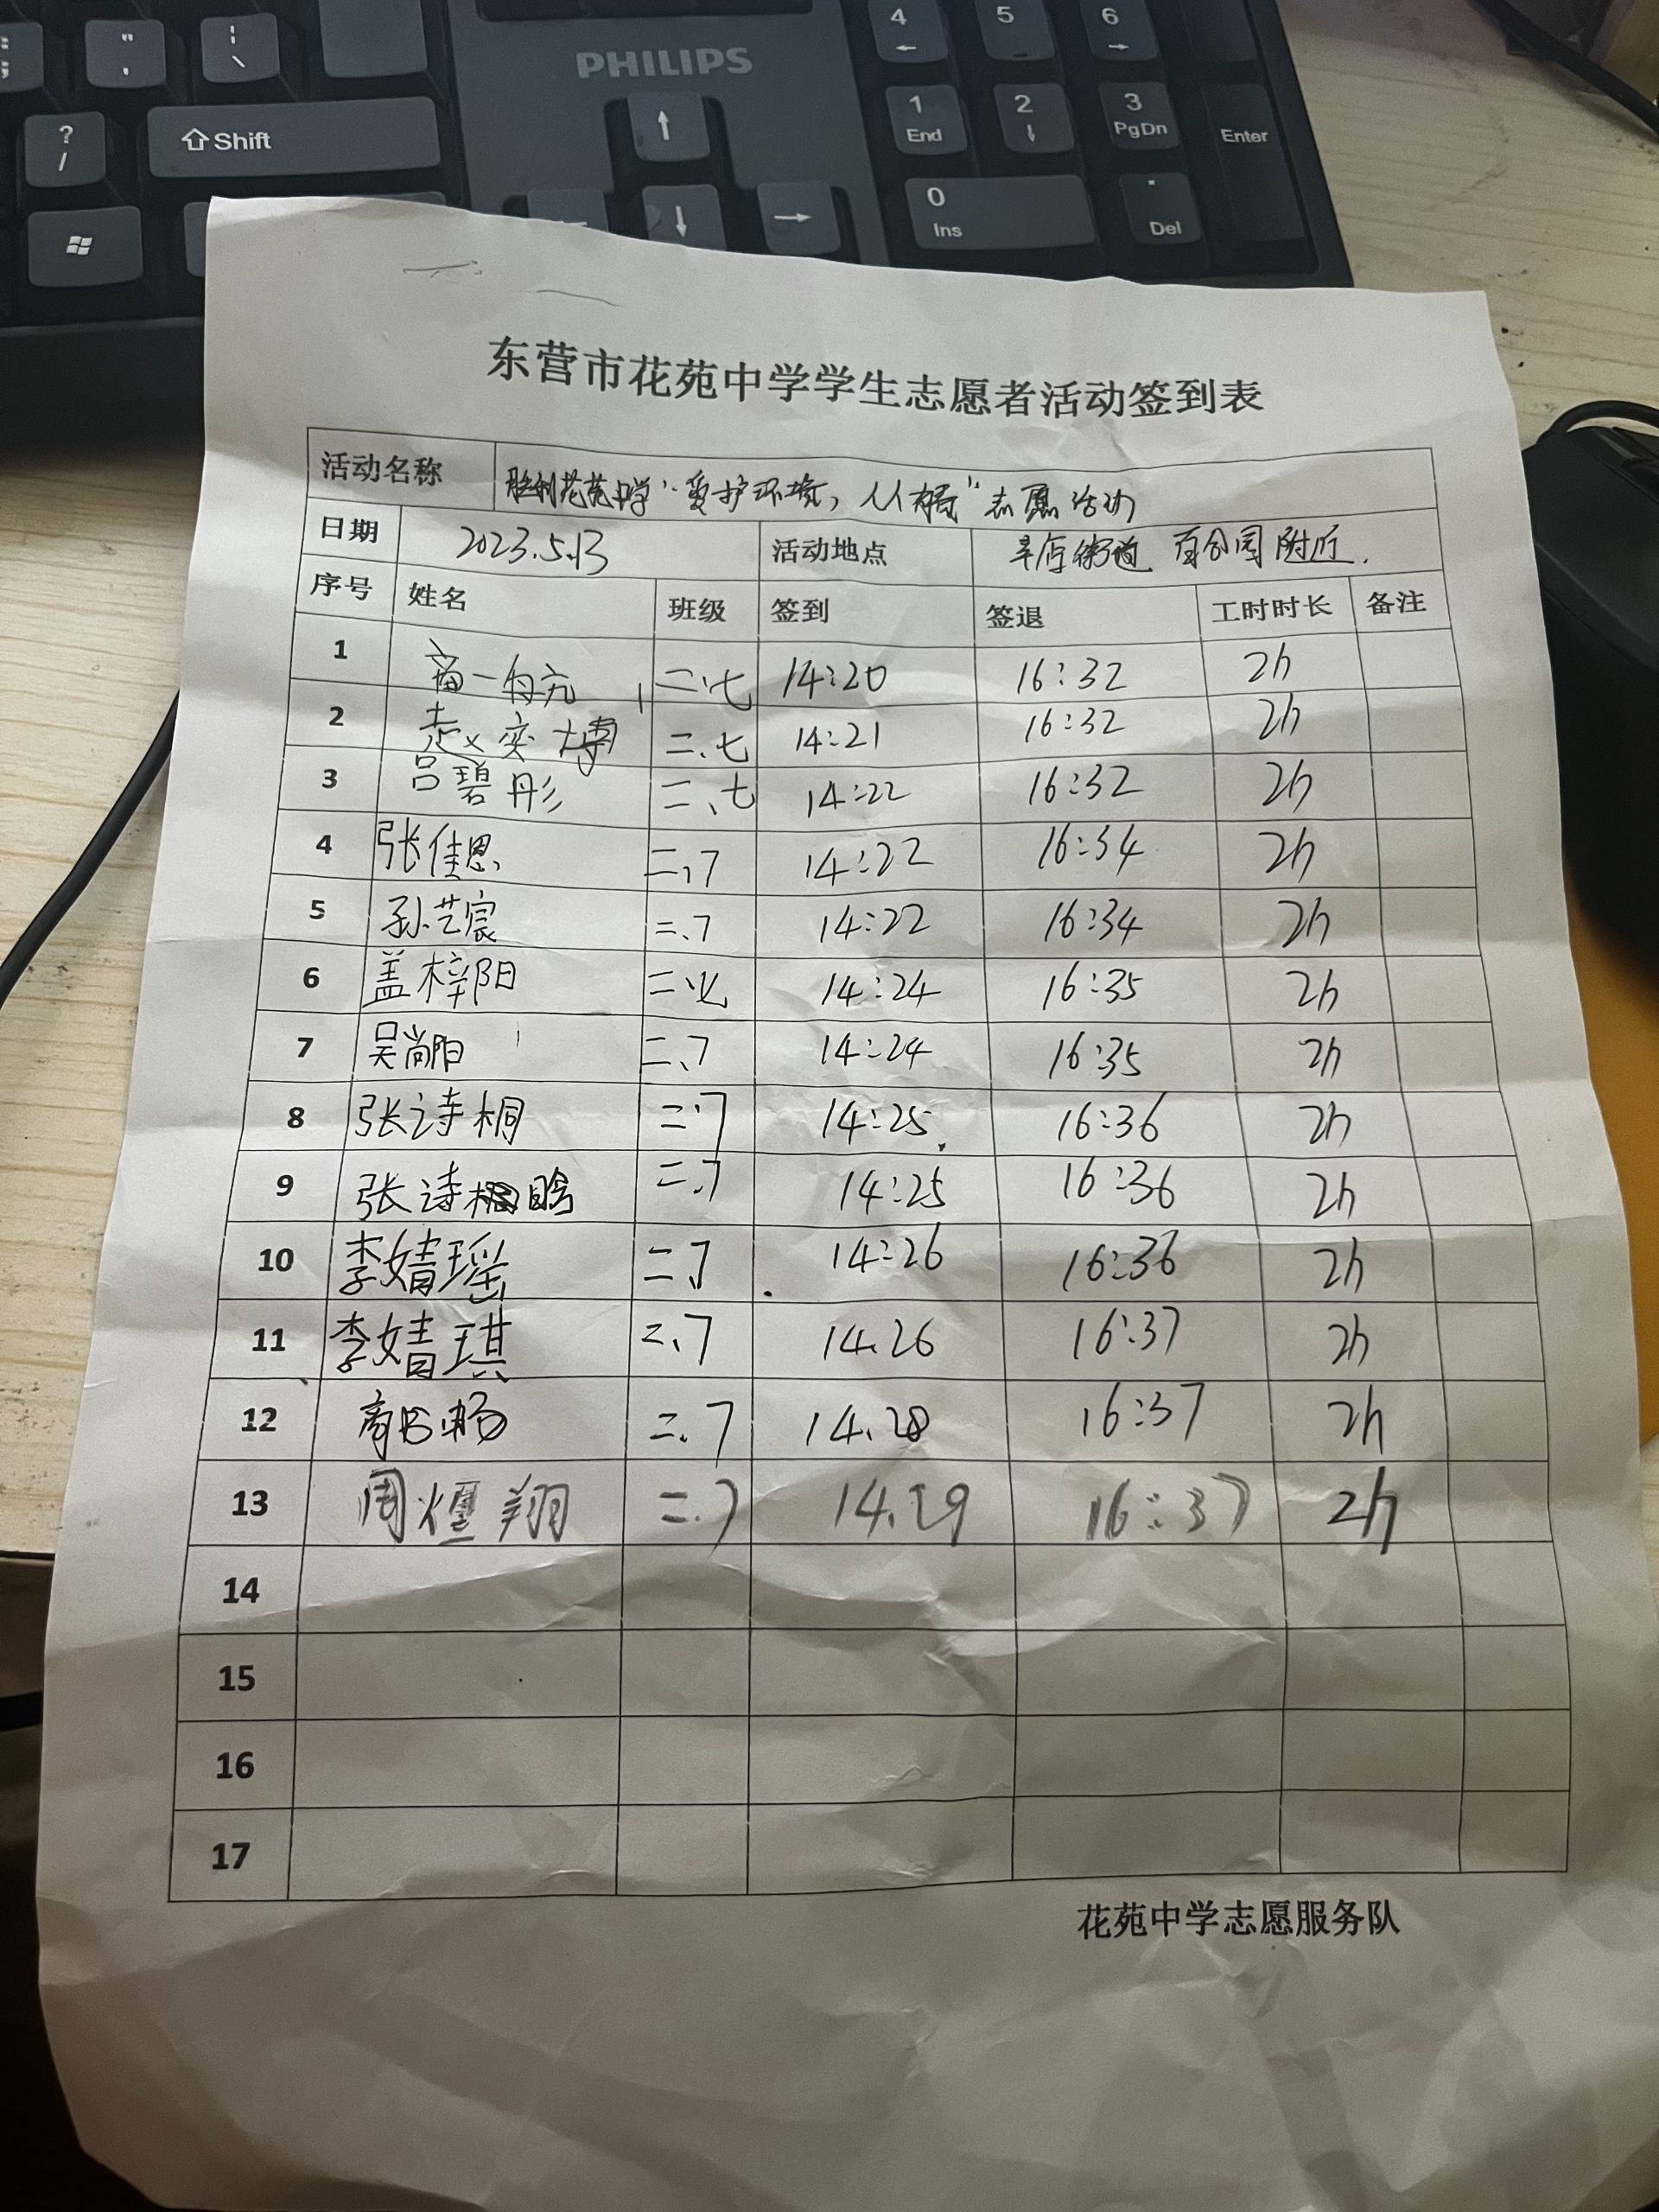 " '
: ;
| \
4 ←
5
6 →
PHILIPS
? /
Shift
↑
1 End
2 ↓
3 PgDn
Enter
↓
→
0 Ins
. Del
东营市花苑中学学生志愿者活动签到表
活动名称 胜利花苑中学“爱护环境,人人有责”志愿活动
日期 2023.5.13 活动地点 辛店街道 附近.
序号 姓名 班级 签到 签退 工时时长 备注
1 二.七 14:20 16:32 2h
2 赵奕博 二.七 14:21 16:32 2h
3 吕碧彤 二、七 14:22 16:32 2h
4 张佳思 二、7 14:22 16:34 2h
5 孙艺宸 二.7 14:22 16:34 2h
6 盖梓阳 二 14:24 16:35 2h
7 吴尚阳 二、7 14:24 16:35 2h
8 张诗桐 二.7 14:25 16:36 2h
9 张诗晗 二.7 14:25 16:36 2h
10 李婧瑶 二.7 14:26 16:36 2h
11 李婧琪 二、7 14.26 16:37 2h
12 二.7 14.28 16:37 2h
13 周 翔 二.7 14.29 16:37 2h
14
15
16
17
花苑中学志愿服务队